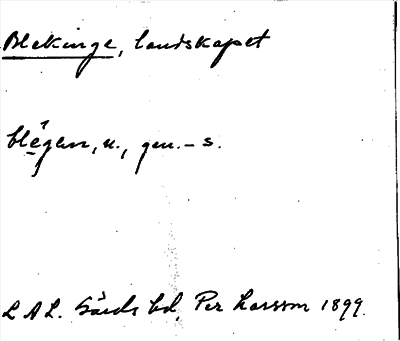 Blekinge, landskapet
blégen, n., gen. - s.
L A L. Gärds hd, Per Larsson 1899.